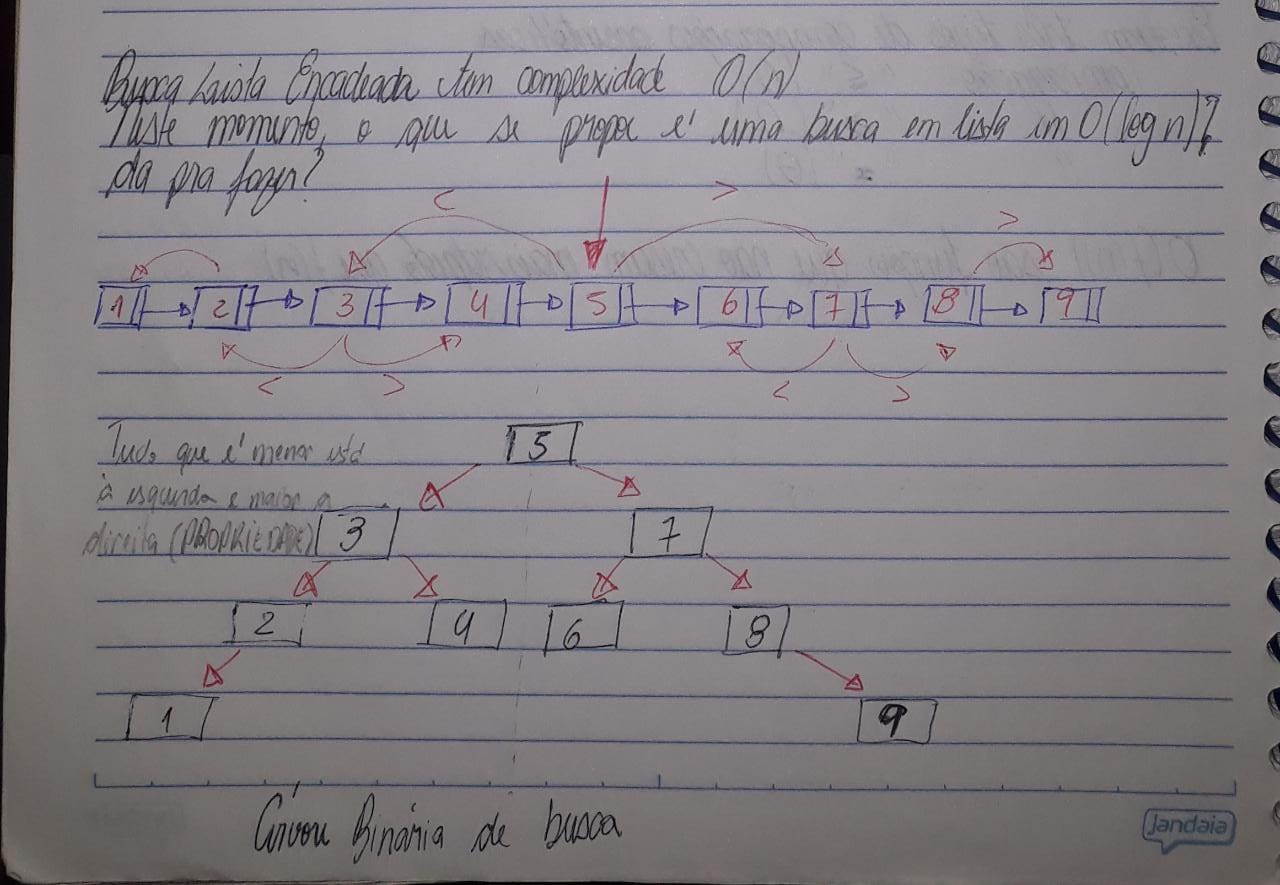 Busca Lista Encadeada tem complexidade O(n)
Neste momento, o que se propoe é uma busca em lista em O(log n)?
da pra fazer?
< > >
1 2 3 4 5 6 7 8 9
< > < >
Tudo que é menor está
à esquerda e maior a
direita (PROPRIEDADE)
5
3 7
2 4 6 8
1 9
Árvore Binária de busca
jandaia